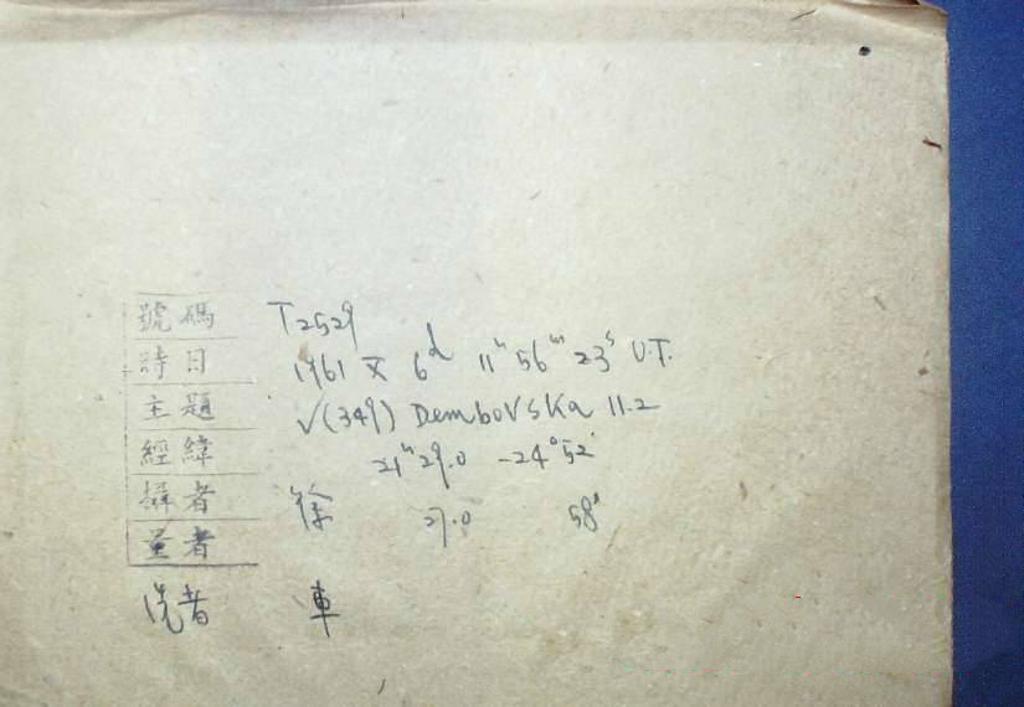 號碼 T2529
時日 1961 X 6d 11h 56m 23s U.T.
主題 √(349) Dembovska 11.2
經緯 21h 29.0 -24°52'
攝者 徐 27.0 58'
量者
洗者 車